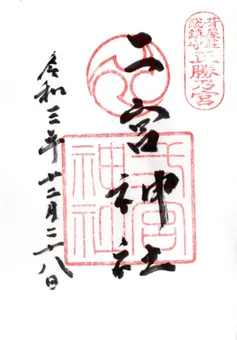 葺屋荘
総鎮守
正勝乃宮
二宮神社
二宮
神社
令和三年十二月二十八日